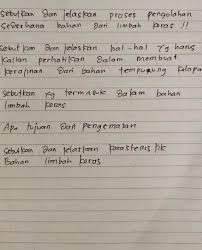 Sebutkan dan jelaskan proses pengolahan
Sederhana bahan dari limbah keras !!
Sebutkan dan jelaskan hal-hal yg harus
kalian perhatikan dalam membuat
kerajinan dari bahan tempurung kelapa
Sebutkan yg termasuk dalam bahan
limbah keras
Apa tujuan dari pengemasan
Sebutkan dan jelaskan karakteristik
Bahan limbah keras